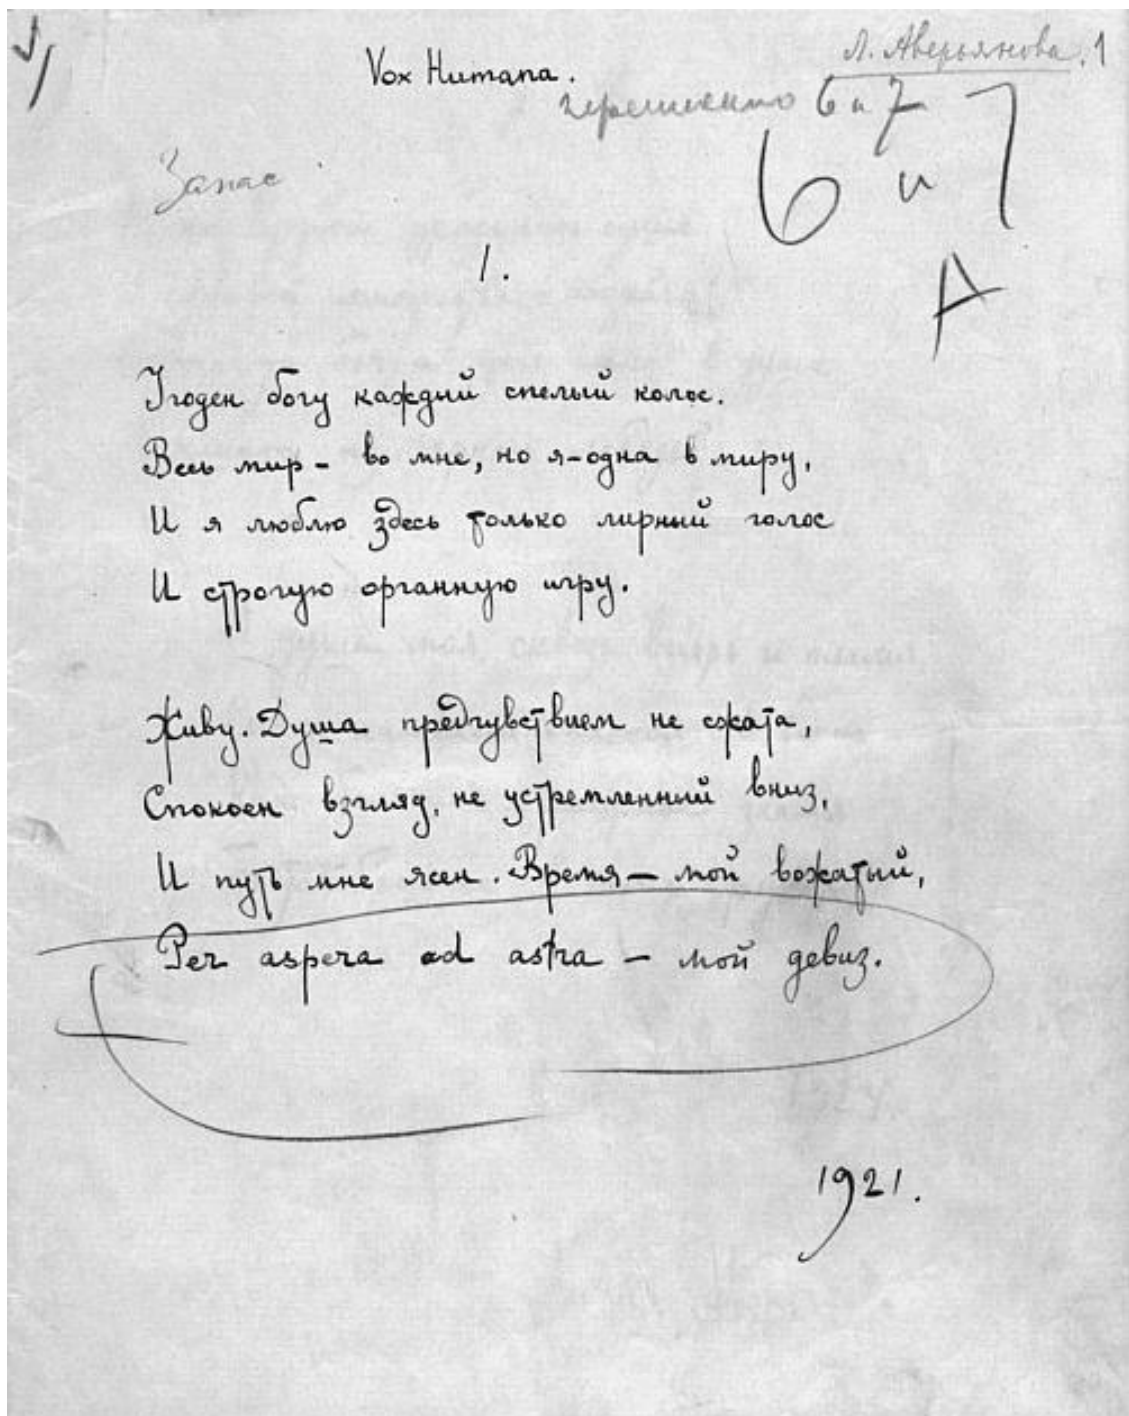 Л. Аверьянова. 1
Vox Humana.
6 и 7
6 и 7
Запас
А
1.
Угоден богу каждый спелый колос.
Весь мир – во мне, но я – одна в миру,
И я люблю здесь только лирный голос
И строгую органную игру.
Живу. Душа предчувствием не сжата,
Спокоен взгляд, не устремленный вниз,
И путь мне ясен. Время – мой вожатый,
Per aspera ad astra – мой девиз.
1921.